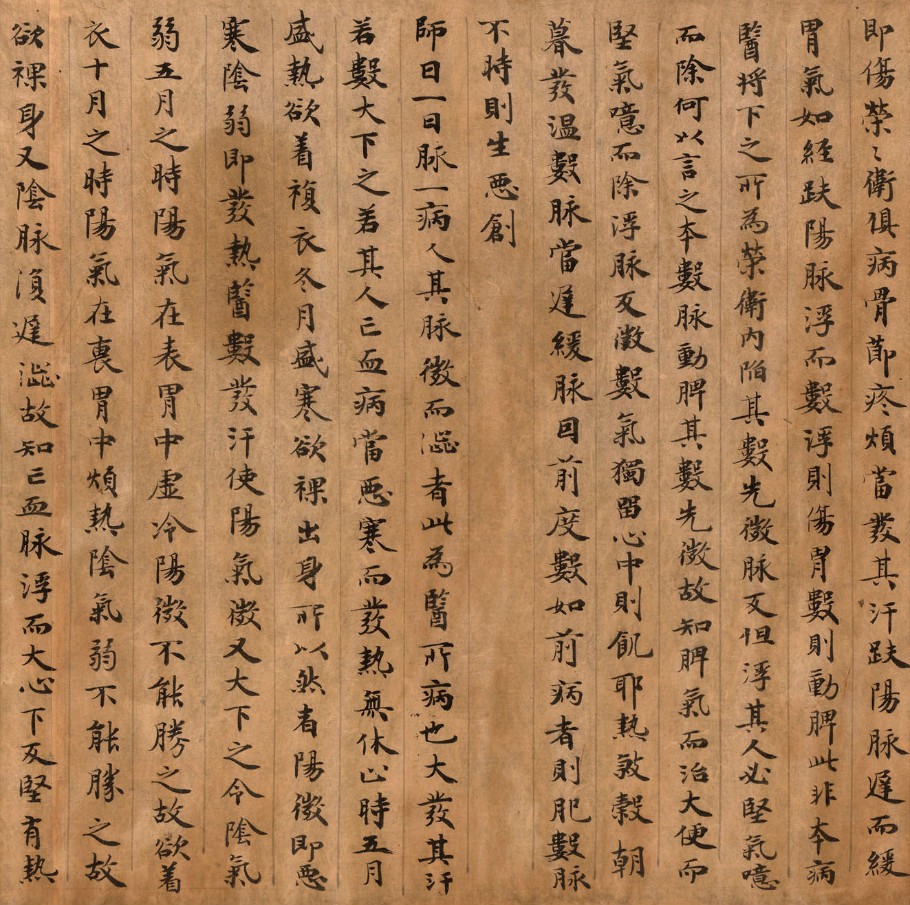 即傷榮〻衛俱病骨節疼煩當發其汗趺陽脉遲而緩
胃氣如経趺陽脉浮而數浮則傷胃數則動脾此非本病
醫将下之所為榮衛内陷其數先微脉反但浮其人必堅氣噫
而除何以言之本數脉動脾其數先微故知脾氣而治大便而
堅氣噫而除浮脉反微數氣獨留心中則飢耶熱煞穀朝
暮發温數脉當遲緩脉因前度數如前病者則肥數脉
不時則生惡創
師曰一曰脉一病人其脉微而澁者此為醫所病也大發其汗
若數大下之若其人亡血病當惡寒而發熱無休止時五月
盛熱欲着複衣冬月盛寒欲裸出身所以然者陽微即惡
寒陰弱即發熱醫數發汗使陽氣微又大下之令陰氣
弱五月之時陽氣在表胃中虚冷陽微不能勝之故欲着
衣十月之時陽氣在裏胃中煩熱陰氣弱不能勝之故
欲裸身又陰脉復遲澁故知亡血脉浮而大心下反堅有熱